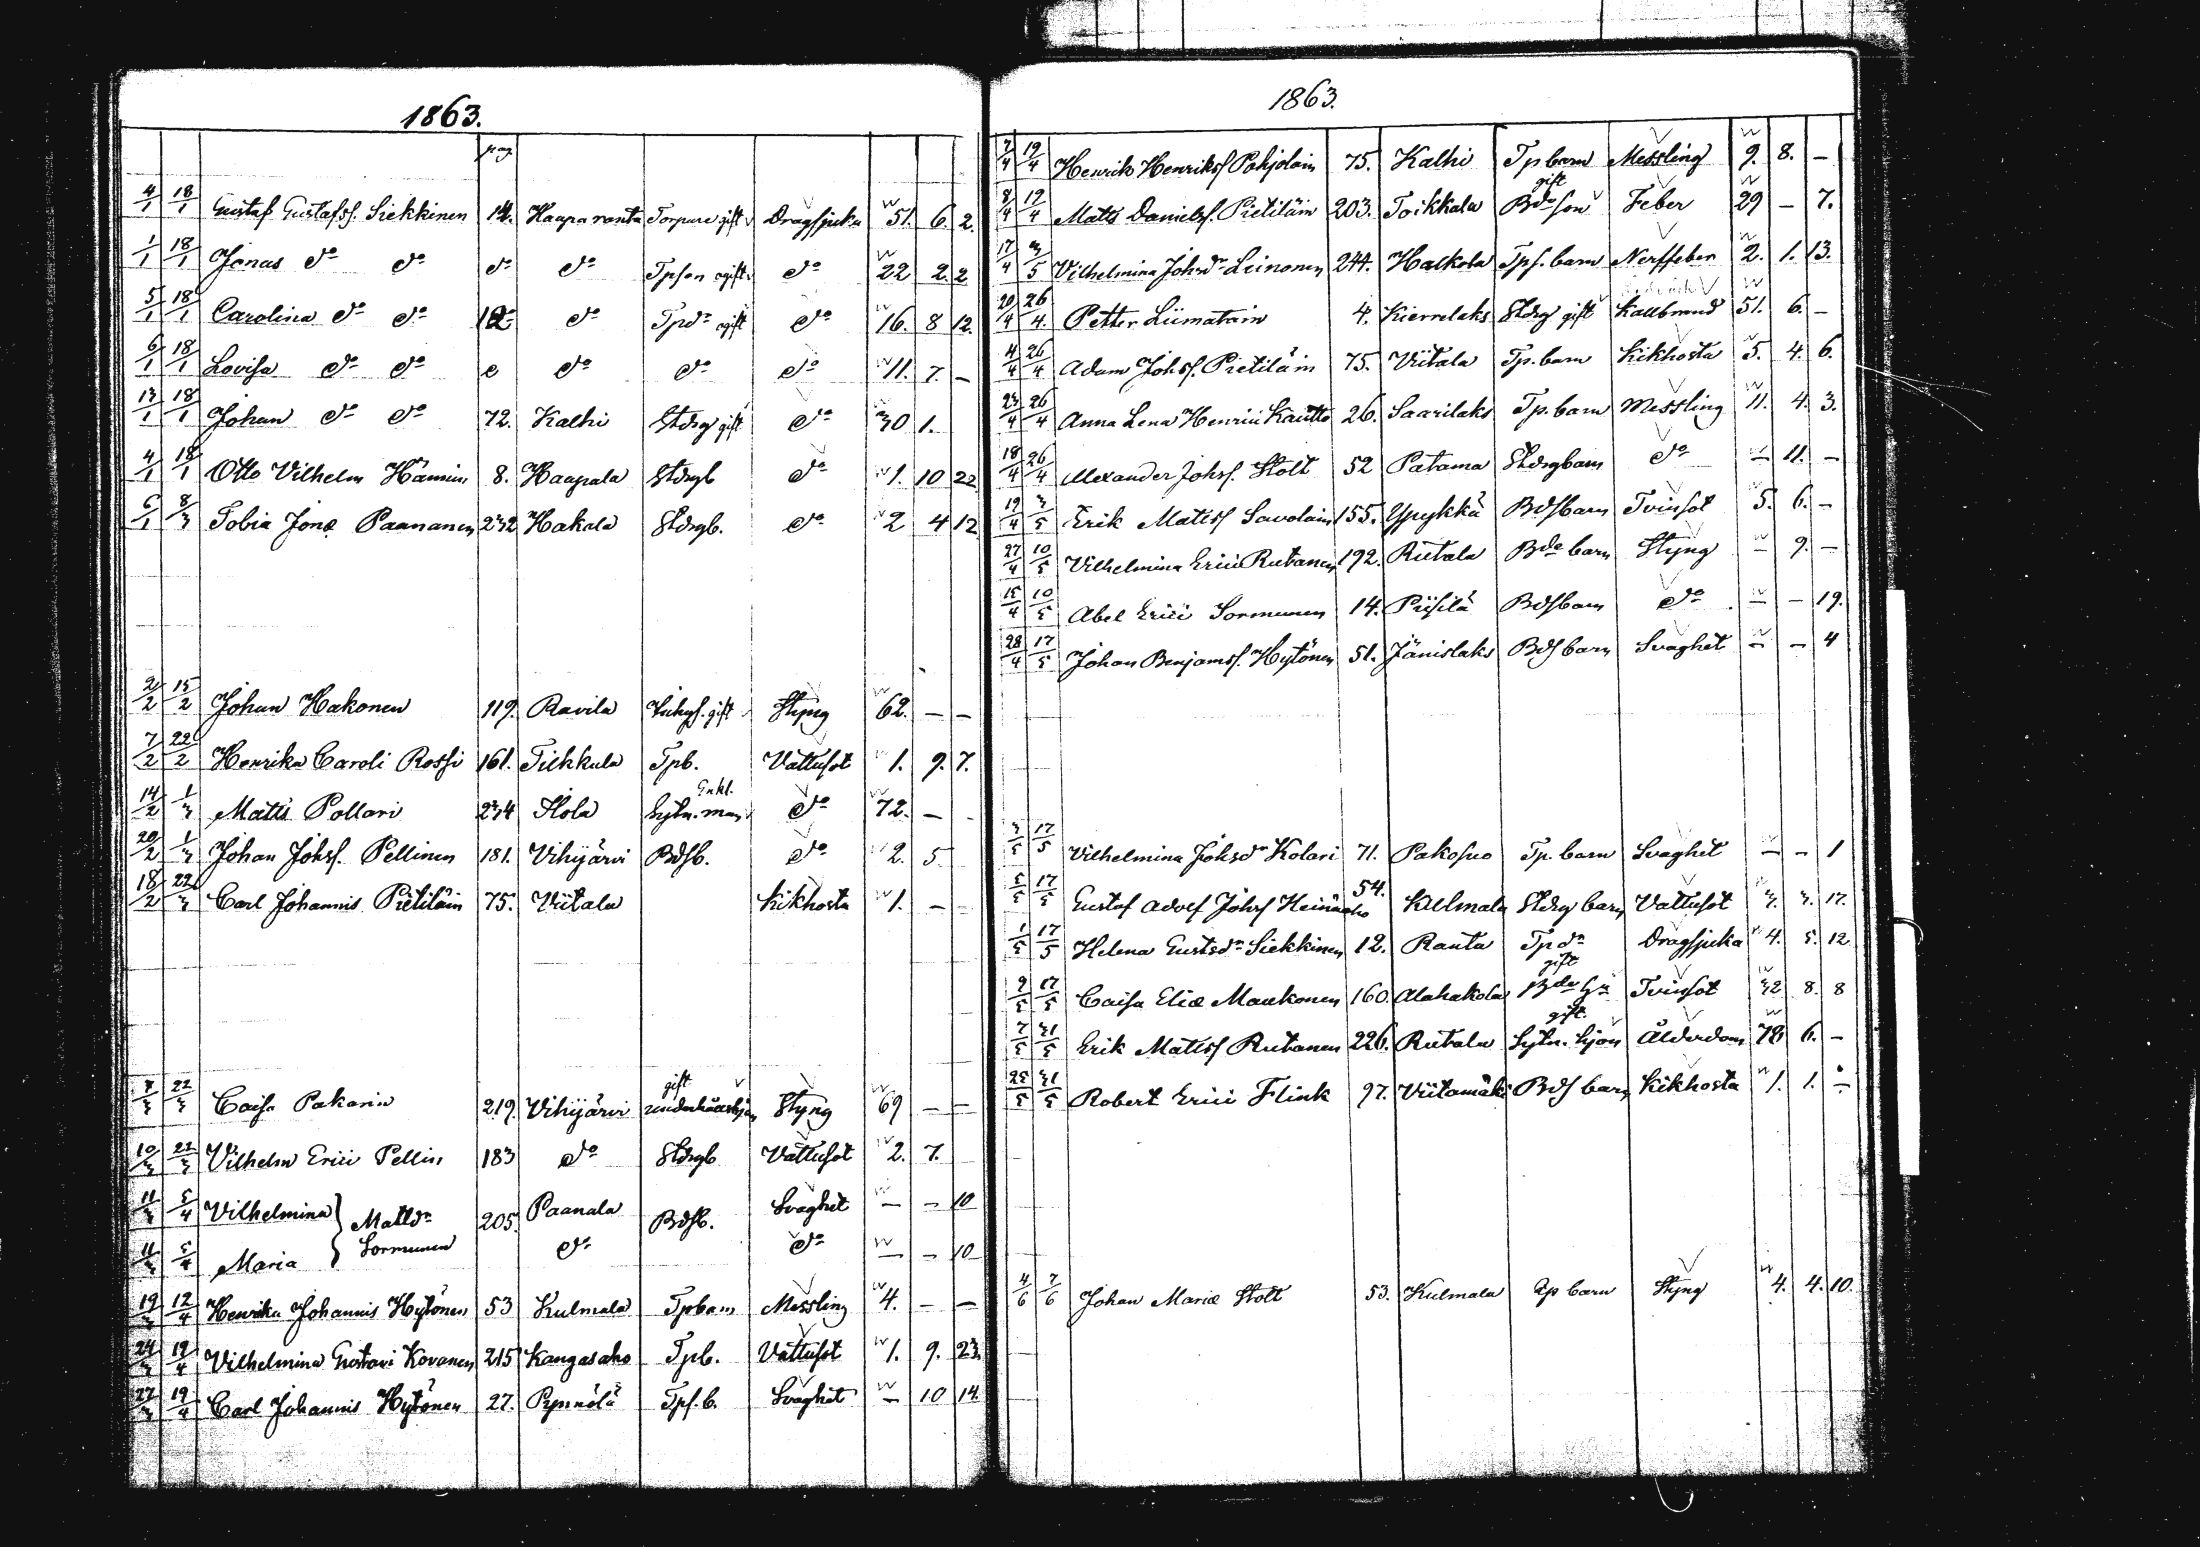 1863.
pag
4/1 18/1 Gustaf Gustafsf. Siekkinen 14. Haaparanta Torpare gift Dragsjuka 51. 6. 2.
1/1 18/1 Jonas do do do do Tpson ogift do 22 2 2
5/1 18/1 Carolina do do 12 do Tpdr ogift do 16. 8 12.
6/1 18/1 Lovisa do do do do do 11. 7. –
13/1 18/1 Johan do do 72. Kalhi Stdrg gift do 30 1.
4/1 18/1 Otto Vilhelm Hämin 8. Haapala Stdrgb do 1. 10 22
6/1 8/3 Tobia Jonæ Paananen 232 Hakala Stdrgb. do 2 4 12
2/2 15/2 Johan Hakonen 119. Ravila gift Styng 62. – –
7/2 22/2 Henrika Caroli Rossi 161. Tiehkula Tpb. Vattusot 1. 9. 7.
14/2 1/3 Matts Pollari 234 Ilola Enkl. Sytn. man do 72. –
20/2 1/3 Johan Johsf. Pellinen 181. Vihijärvi Bdsb. do 2. 5.
18/2 22/3 Carl Johannis Pietiläin 75. Viitala Kikhosta 1. – –
3/3 22/3 Caisa Pakarin 219. Vihijärvi gift underhållshjon Styng 69 – –
10/3 22/3 Vilhelm Erici Pellin 183 do Stdrgb Vattusot 2. 7.
11/3 5/4 Vilhelmina } Mattsdr Sormunen 205. Paanala Bdsb. Svaghet – – 10
11/3 5/4 Maria do do – – 10
19/3 12/4 Henrika Johannis Hytönen 53 Kulmala Tpbarn Messling 4. – –
24/3 19/4 Vilhelmina Gustavi Kovanen 215 Kangasaho Tpb. Vattusot 1. 9. 23.
27/3 19/4 Carl Johannis Hytönen 27. Pynnölä Tps. b. Svaghet – 10 14.
1863.
7/4 19/4 Henrik Henriksf Pohjolain 75. Kalhi Tp barn Messling 9. 8. –
8/4 19/4 Matts Danielsf. Pietiläin 203. Toikkala gift Bde son Feber 29 – 7.
17/4 3/5 Vilhelmina Johsdr Leinonen 244. Halkola Tps. barn Nerffeber 2. 1. 13.
20/4 26/4 Petter Liimatain 4. Kierrelaks Stdrg gift Kallbrand 51. 6. –
4/4 26/4 Adam Johsf. Pietiläin 75. Viitala Tp. barn Kikhosta 5. 4. 6.
23/4 26/4 Anna Lena Henrici Kautto 26. Saarilaks Tp. barn Messling 11. 4. 3.
18/4 26/4 Alexander Johsf. Stolt 52 Patama Stdrgbarn do – 11. –
19/4 3/5 Erik Mattsf Savolain 155. Ypykkä Bdsbarn Tvinsot 5. 6. –
27/4 10/5 Vilhelmina Erici Rutanen 192. Rutala Bde barn Styng – 9. –
15/4 10/5 Abel Erici Sormunen 14. Piisilä Bdsbarn do – – 19.
28/4 17/5 Johan Benjamsf. Hytönen 51. Jänislaks Bds barn Svaghet – – 4
3/5 17/5 Vilhelmina Johsdr Kolari 71. Pakosuo Tp. barn Svaghet – – 1
5/5 17/5 Gustaf Adolf Johsf Heinäaho 54. Kulmala Stdrg barn Vattusot 3. 3. 17.
1/5 17/5 Helena Gustsdr Siekkinen 12. Ranta Tpdr Dragsjuka 4. 5. 12
9/5 17/5 Caisa Eliæ Maukonen 160. Alahakola gift Tvinsot 32 8. 8
7/5 31/5 Erik Mattsf Rutanen 226. Rutala gift. Sytn. hjon Ålderdom 78 6. –
25/5 31/5 Robert Erici Flink 97. Viitamäki Bds barn Kikhosta 1. 1. –
4/6 7/6 Johan Mariæ Stolt 53. Kulmala barn Styng 4. 4. 10.